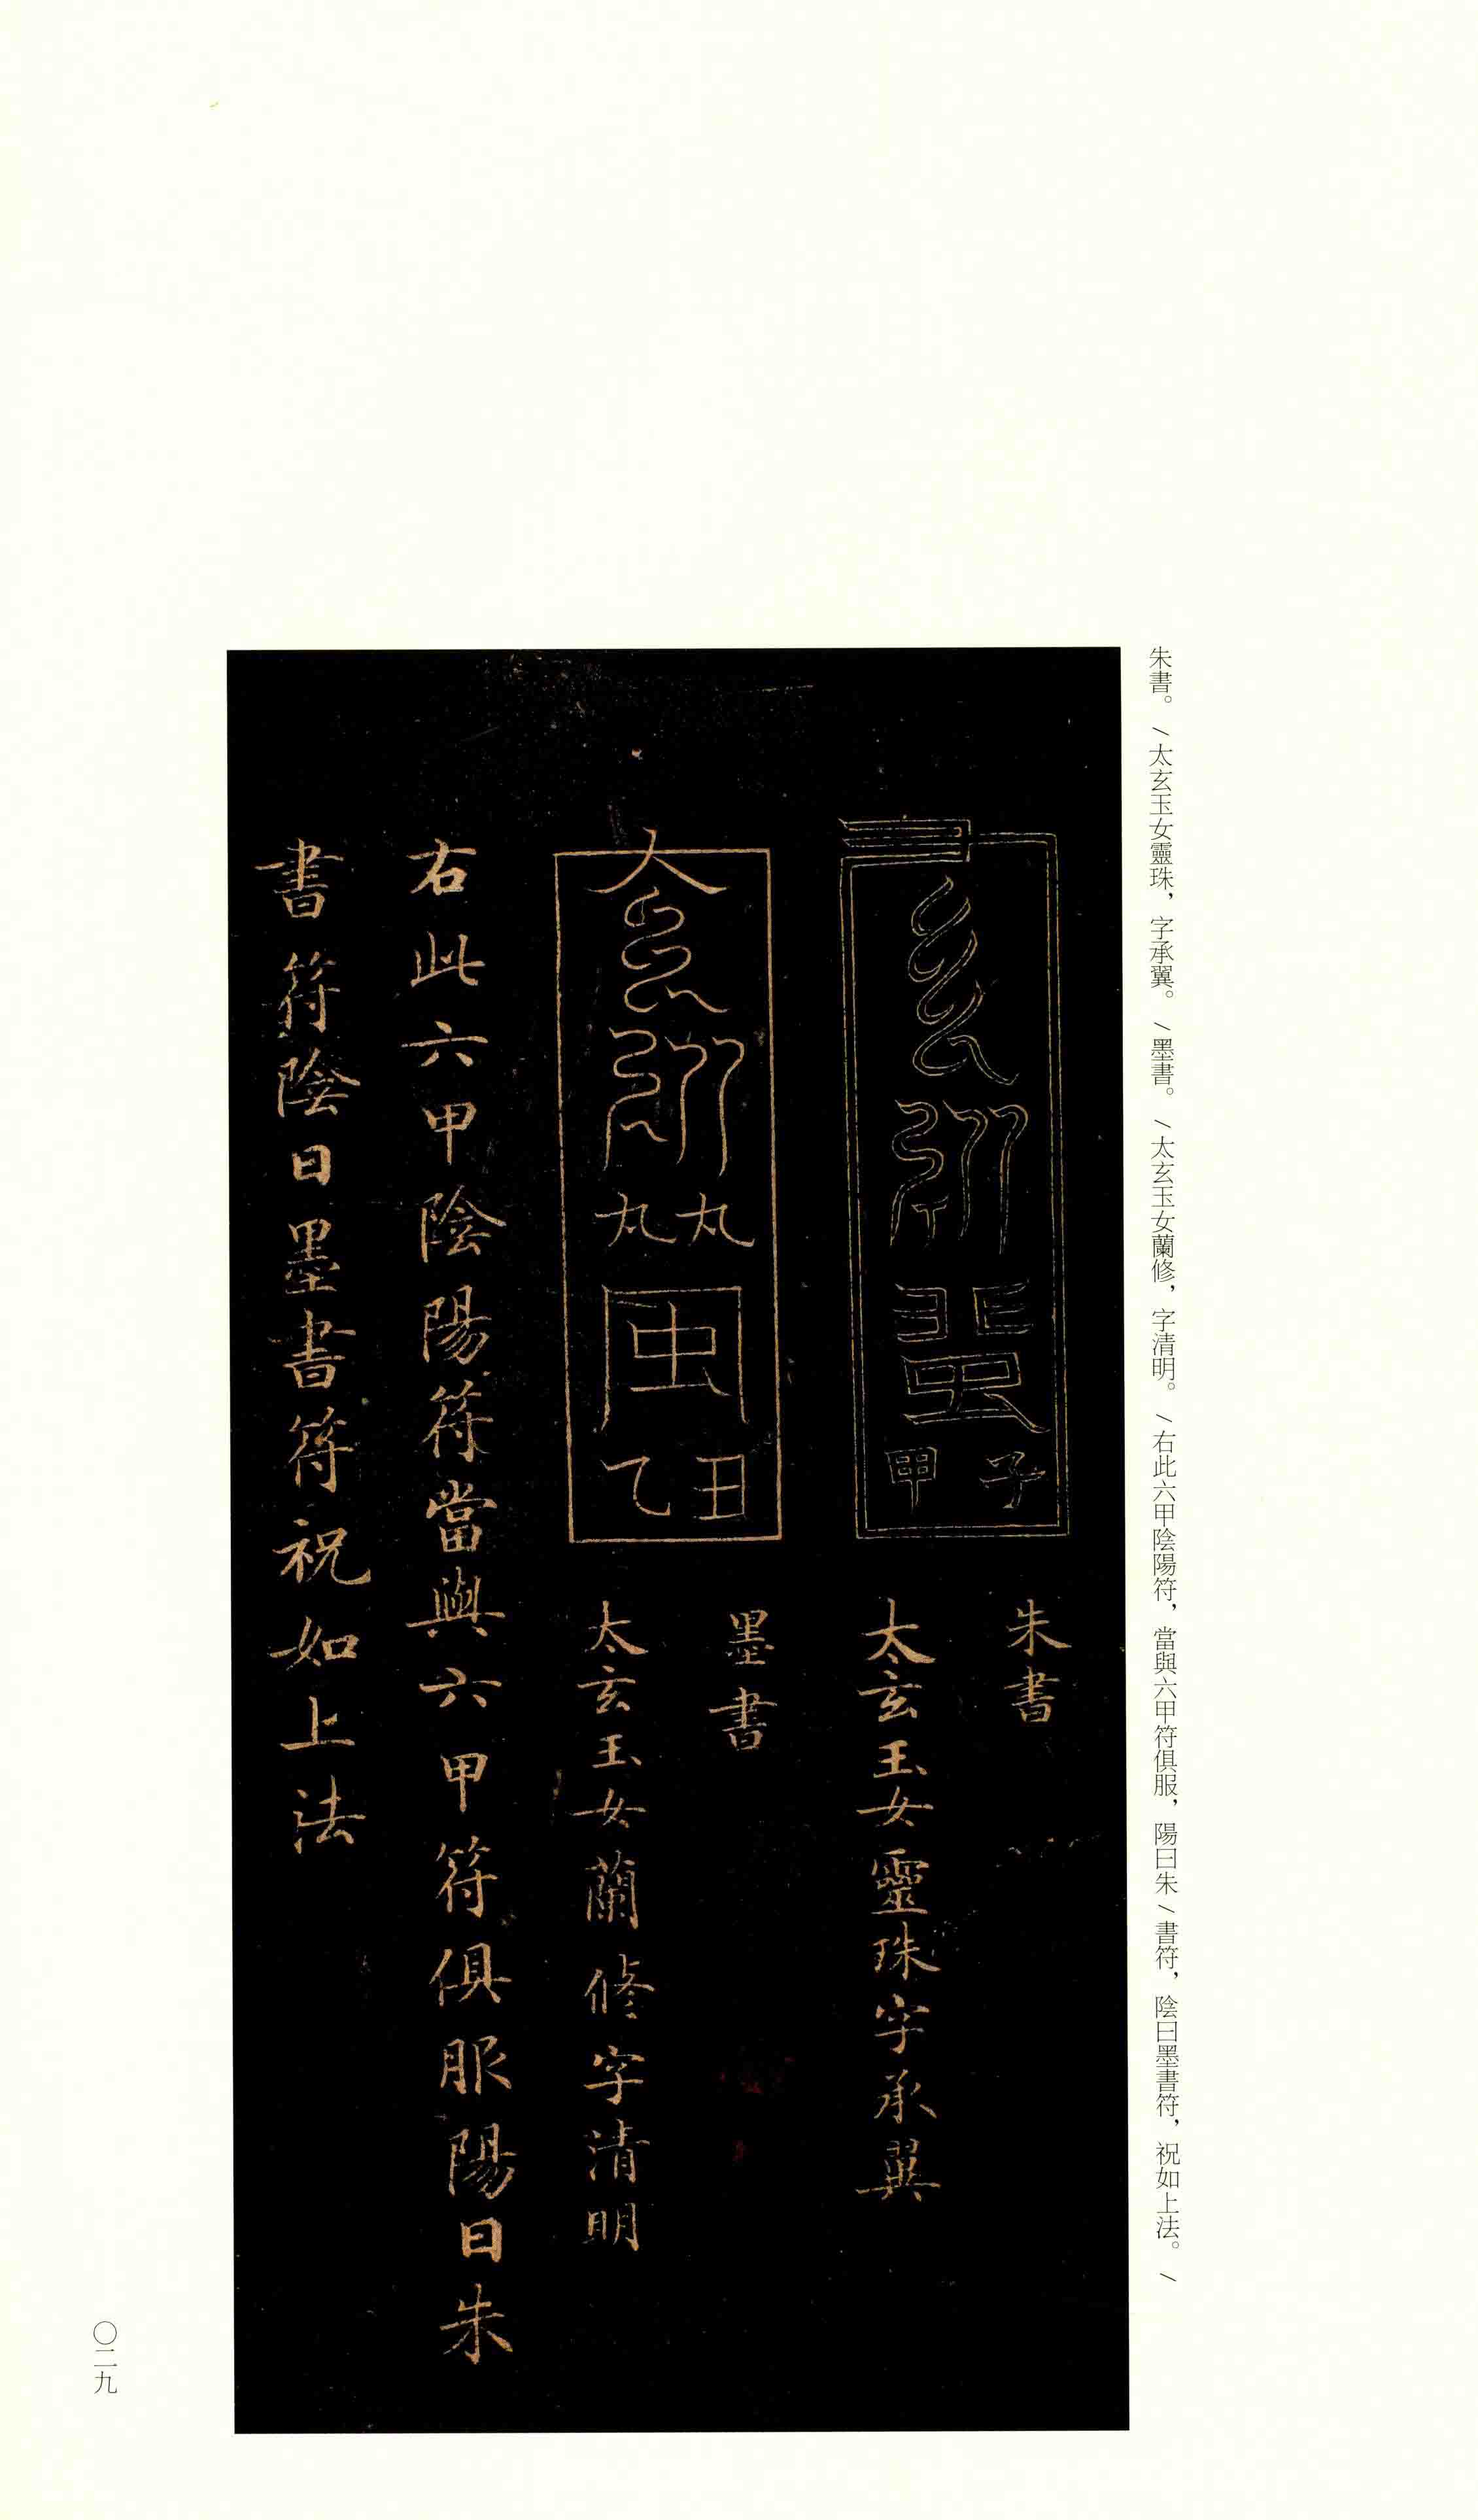 朱書。/太玄玉女靈珠，字承翼。/墨書。/太玄玉女蘭修，字清明。/右此六甲陰陽符，當與六甲符俱服，陽曰朱/書符，陰曰墨書符，祝如上法。/
朱書
太玄玉女靈珠字承翼
子
甲
墨書
太玄玉女蘭修字清明
丑
乙
右此六甲陰陽符當與六甲符俱服陽日朱
書符陰日墨書符祝如上法
〇二九